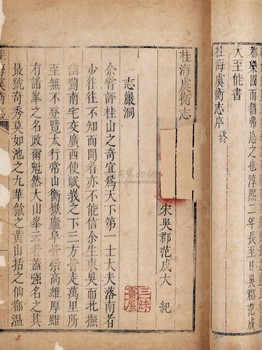 樂國而猶弗忘之也淳熙二年長至日吳郡范成
大至能書
桂海虞衡志序終
桂海虞衡志
宋吳郡范成大 紀
志巖洞
余嘗評桂山之奇宜為天下第一士大夫落南者
少往往不知而聞者亦不能信余生東吳而北撫
幽薊南宅交廣西使岷峨之下三方皆走萬里所
至無不登覽太行常山衡嶽廬阜皆崇高雄厚雖
有諸峯之名政爾魁然大山峯云者蓋強名之其
最號奇秀莫如池之九華歙之黃山括之仙都溫